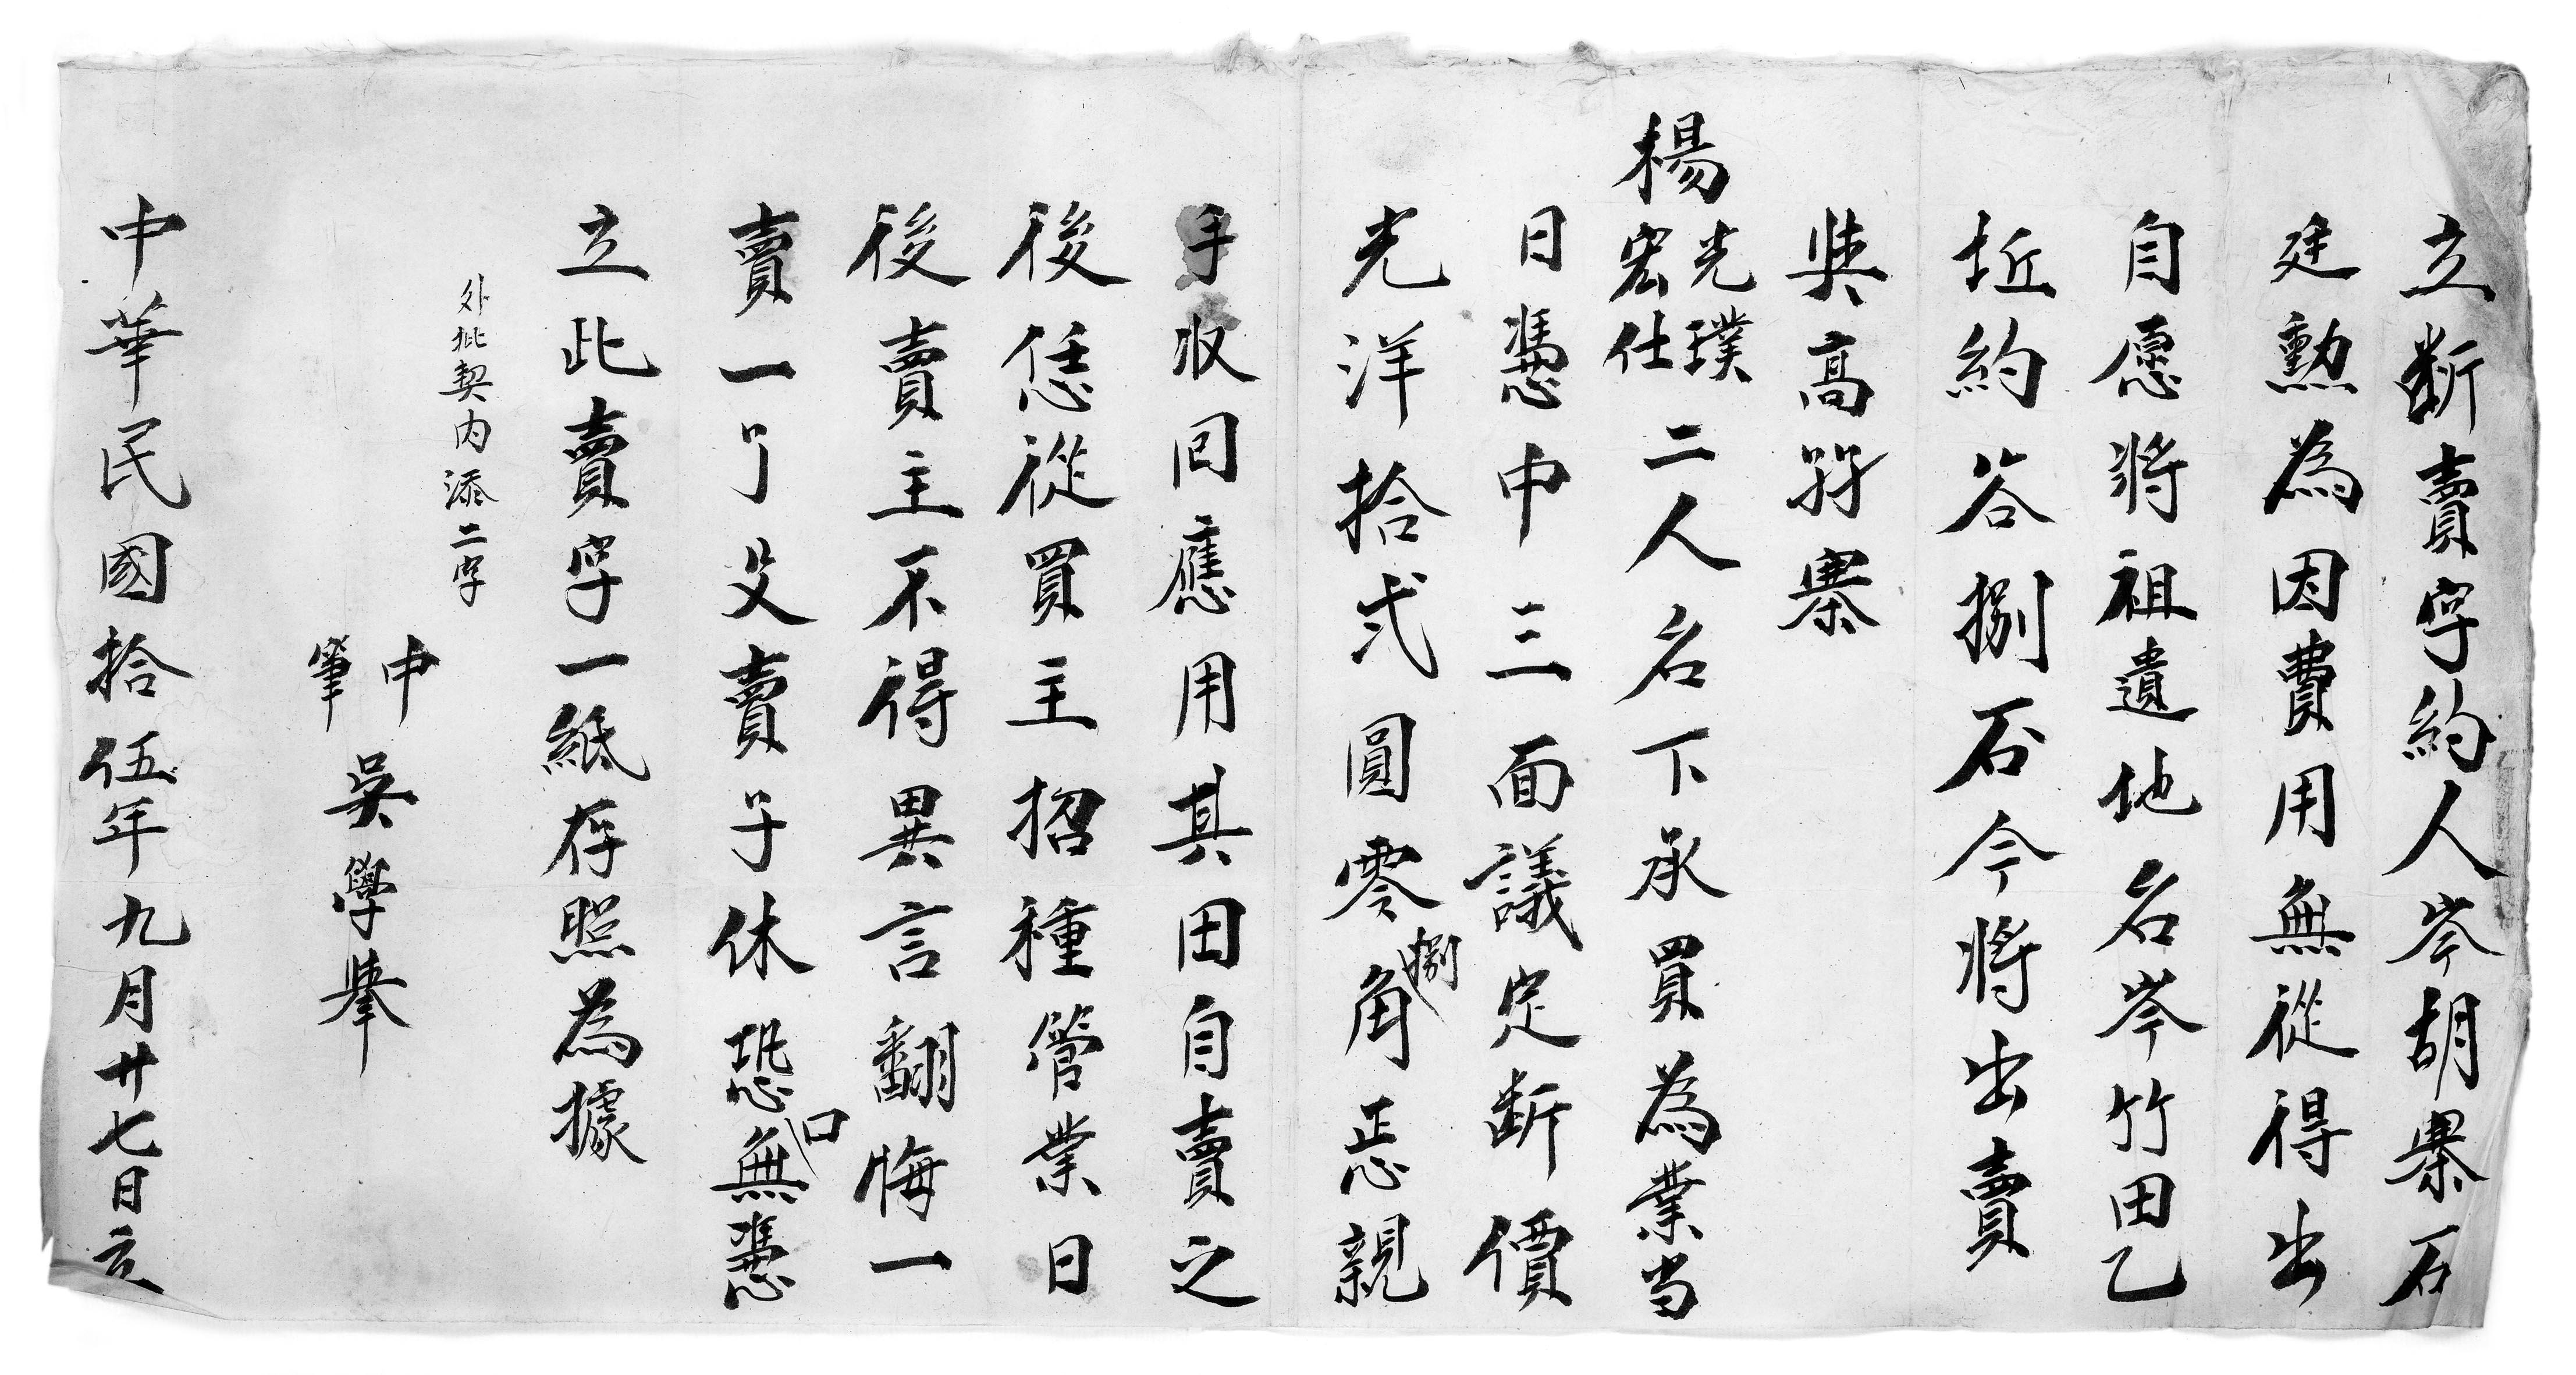 立斷賣字約人岑胡寨石
廷勲為因費用無從得出
自愿將祖遺地名岑竹田乙
坵約谷捌石今將出賣
與高孖寨
楊光璞宏仕二人名下承買為業当
日憑中三面議定断價
光洋拾弍圓零捌角正㤐親
手収回應用其田自賣之
後恁從買主招種管業日
後賣主不得異言翻悔一
賣一了父賣子休恐口無憑
立此賣字一紙存照為據
外批契内添二字
中
筆
吳學舉
中華民國拾伍年九月廿七日立